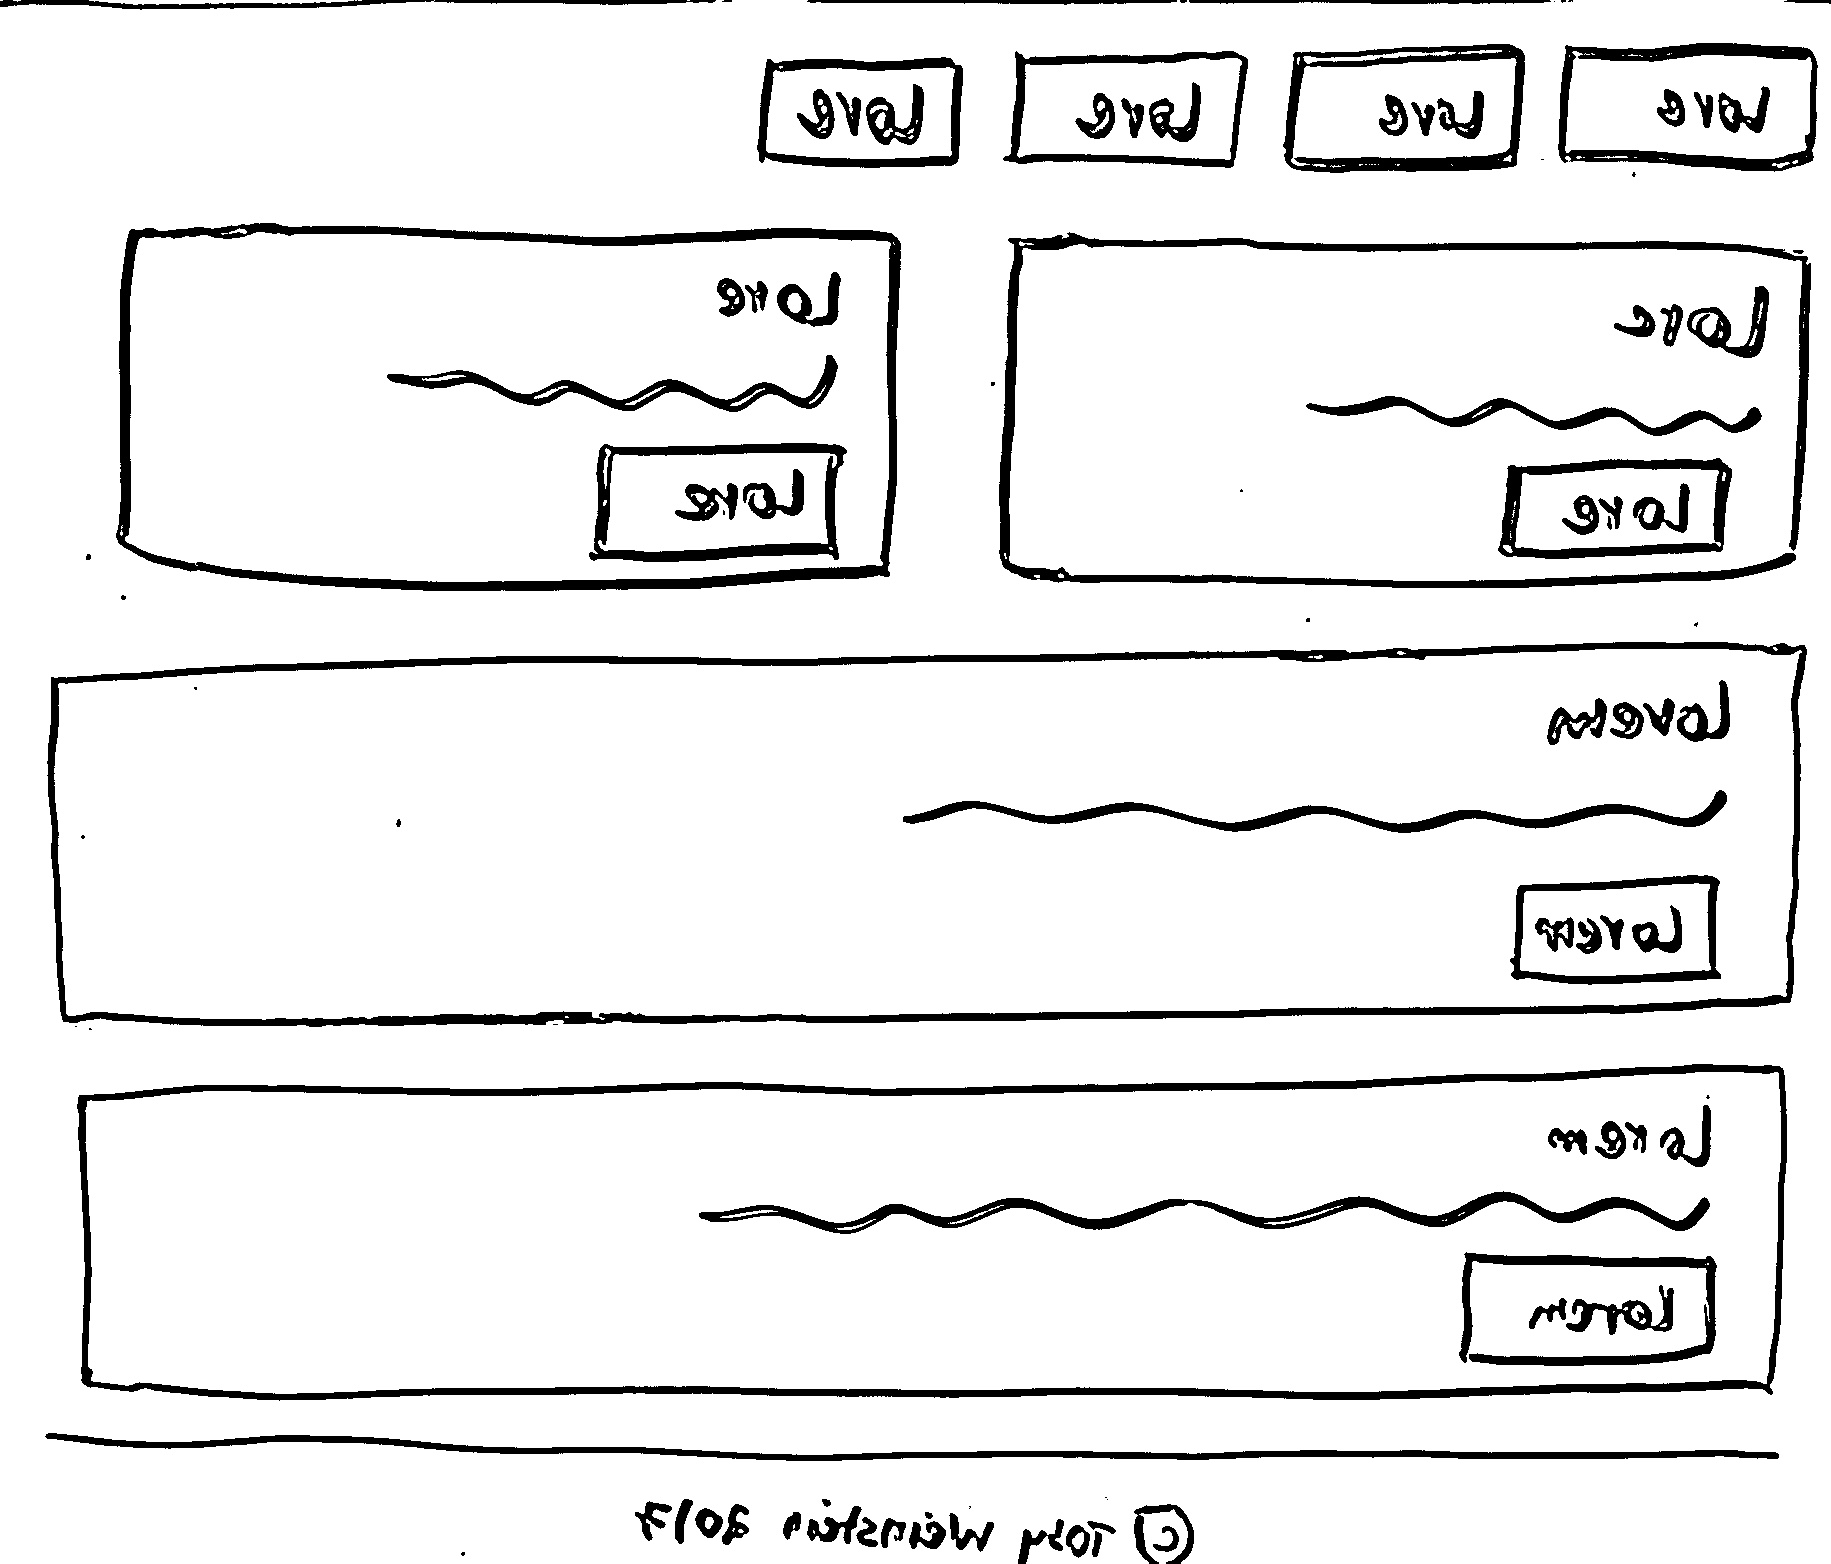 Lore Lore Lore Lore
Lore Lore
Lore Lore
Lorem
Lorem
Lorem
Lorem
© Toby Weinstein 2017